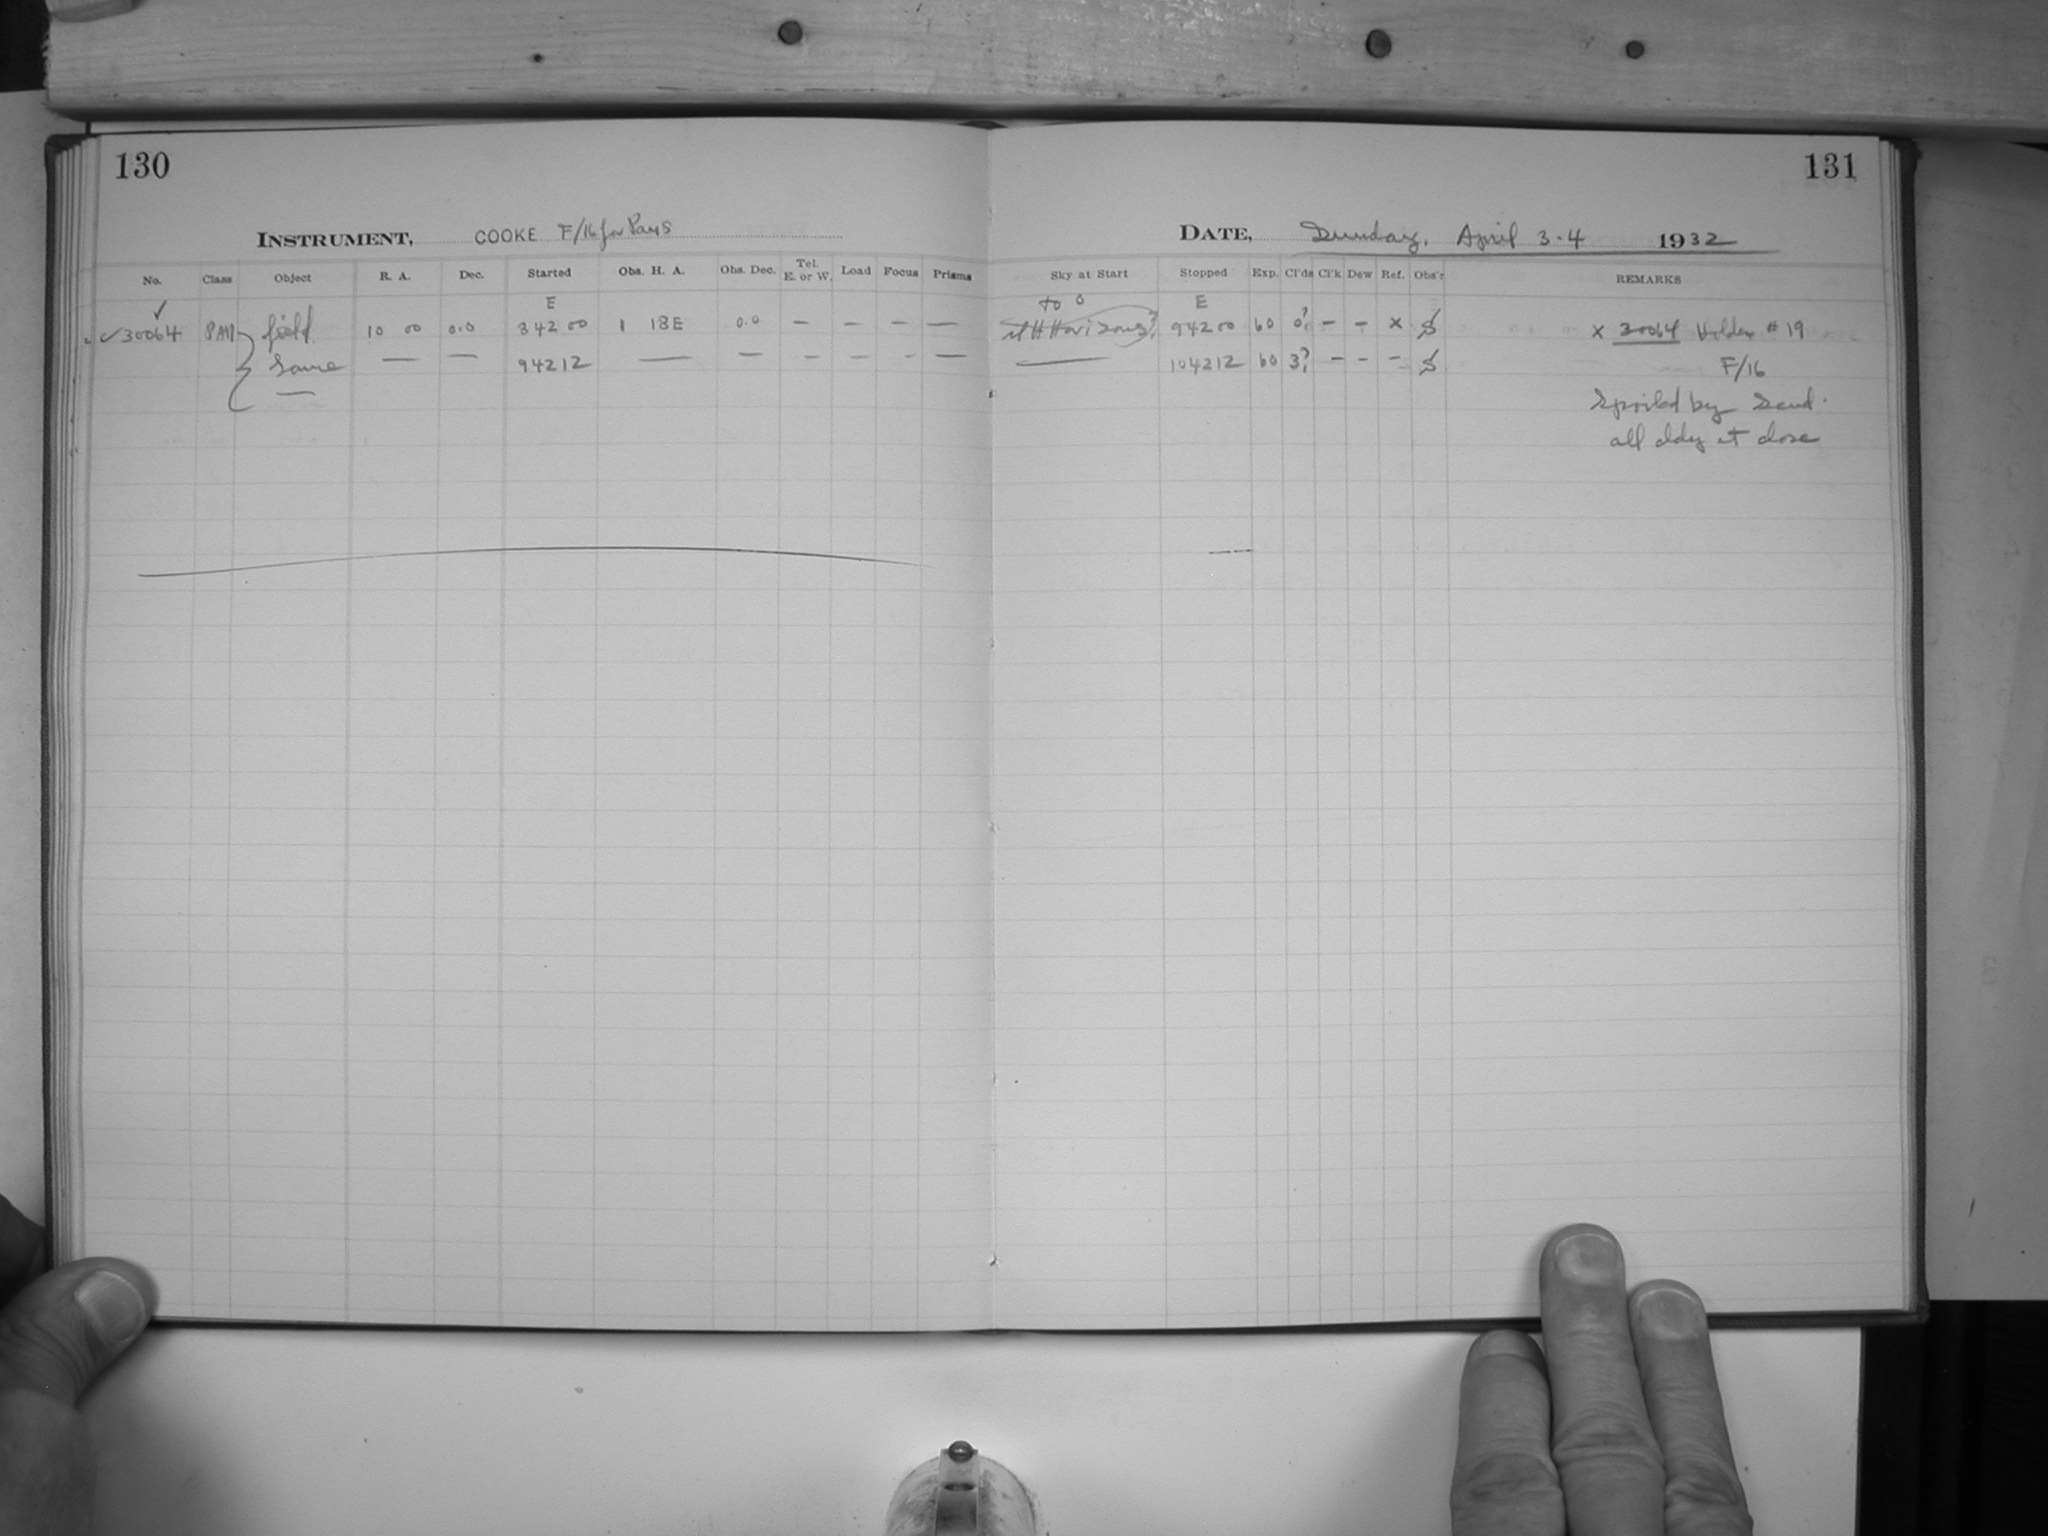 130
131
INSTRUMENT, COOKE F/16 for Pans
DATE, Sunday, April 3-4 1932
No. Class Object R. A. Dec. Started Obs. H. A. Obs. Dec. Tel. E. or W. Load Focus Prisms
Sky at Start Stopped Exp. Cl'ds Cl'k Dew Ref. Obs'r REMARKS
✓ E
to 0 E
✓30064 PAN field 10 00 0.0 842 00 1 18E 0.0 — — — —
942 00 60 0? — — x x 30064 Holder #19
Same — — 94212 — — — — — —
— 104212 60 3? — — — F/16
—
Spoiled by
all cldy at close